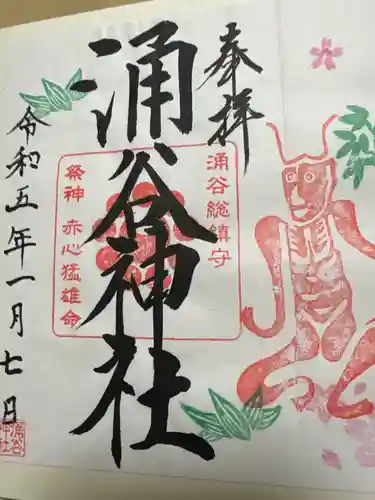 奉拝
涌谷総鎮守
涌谷神社
祭神 赤心猛雄命
令和五年一月七日
涌谷
神社